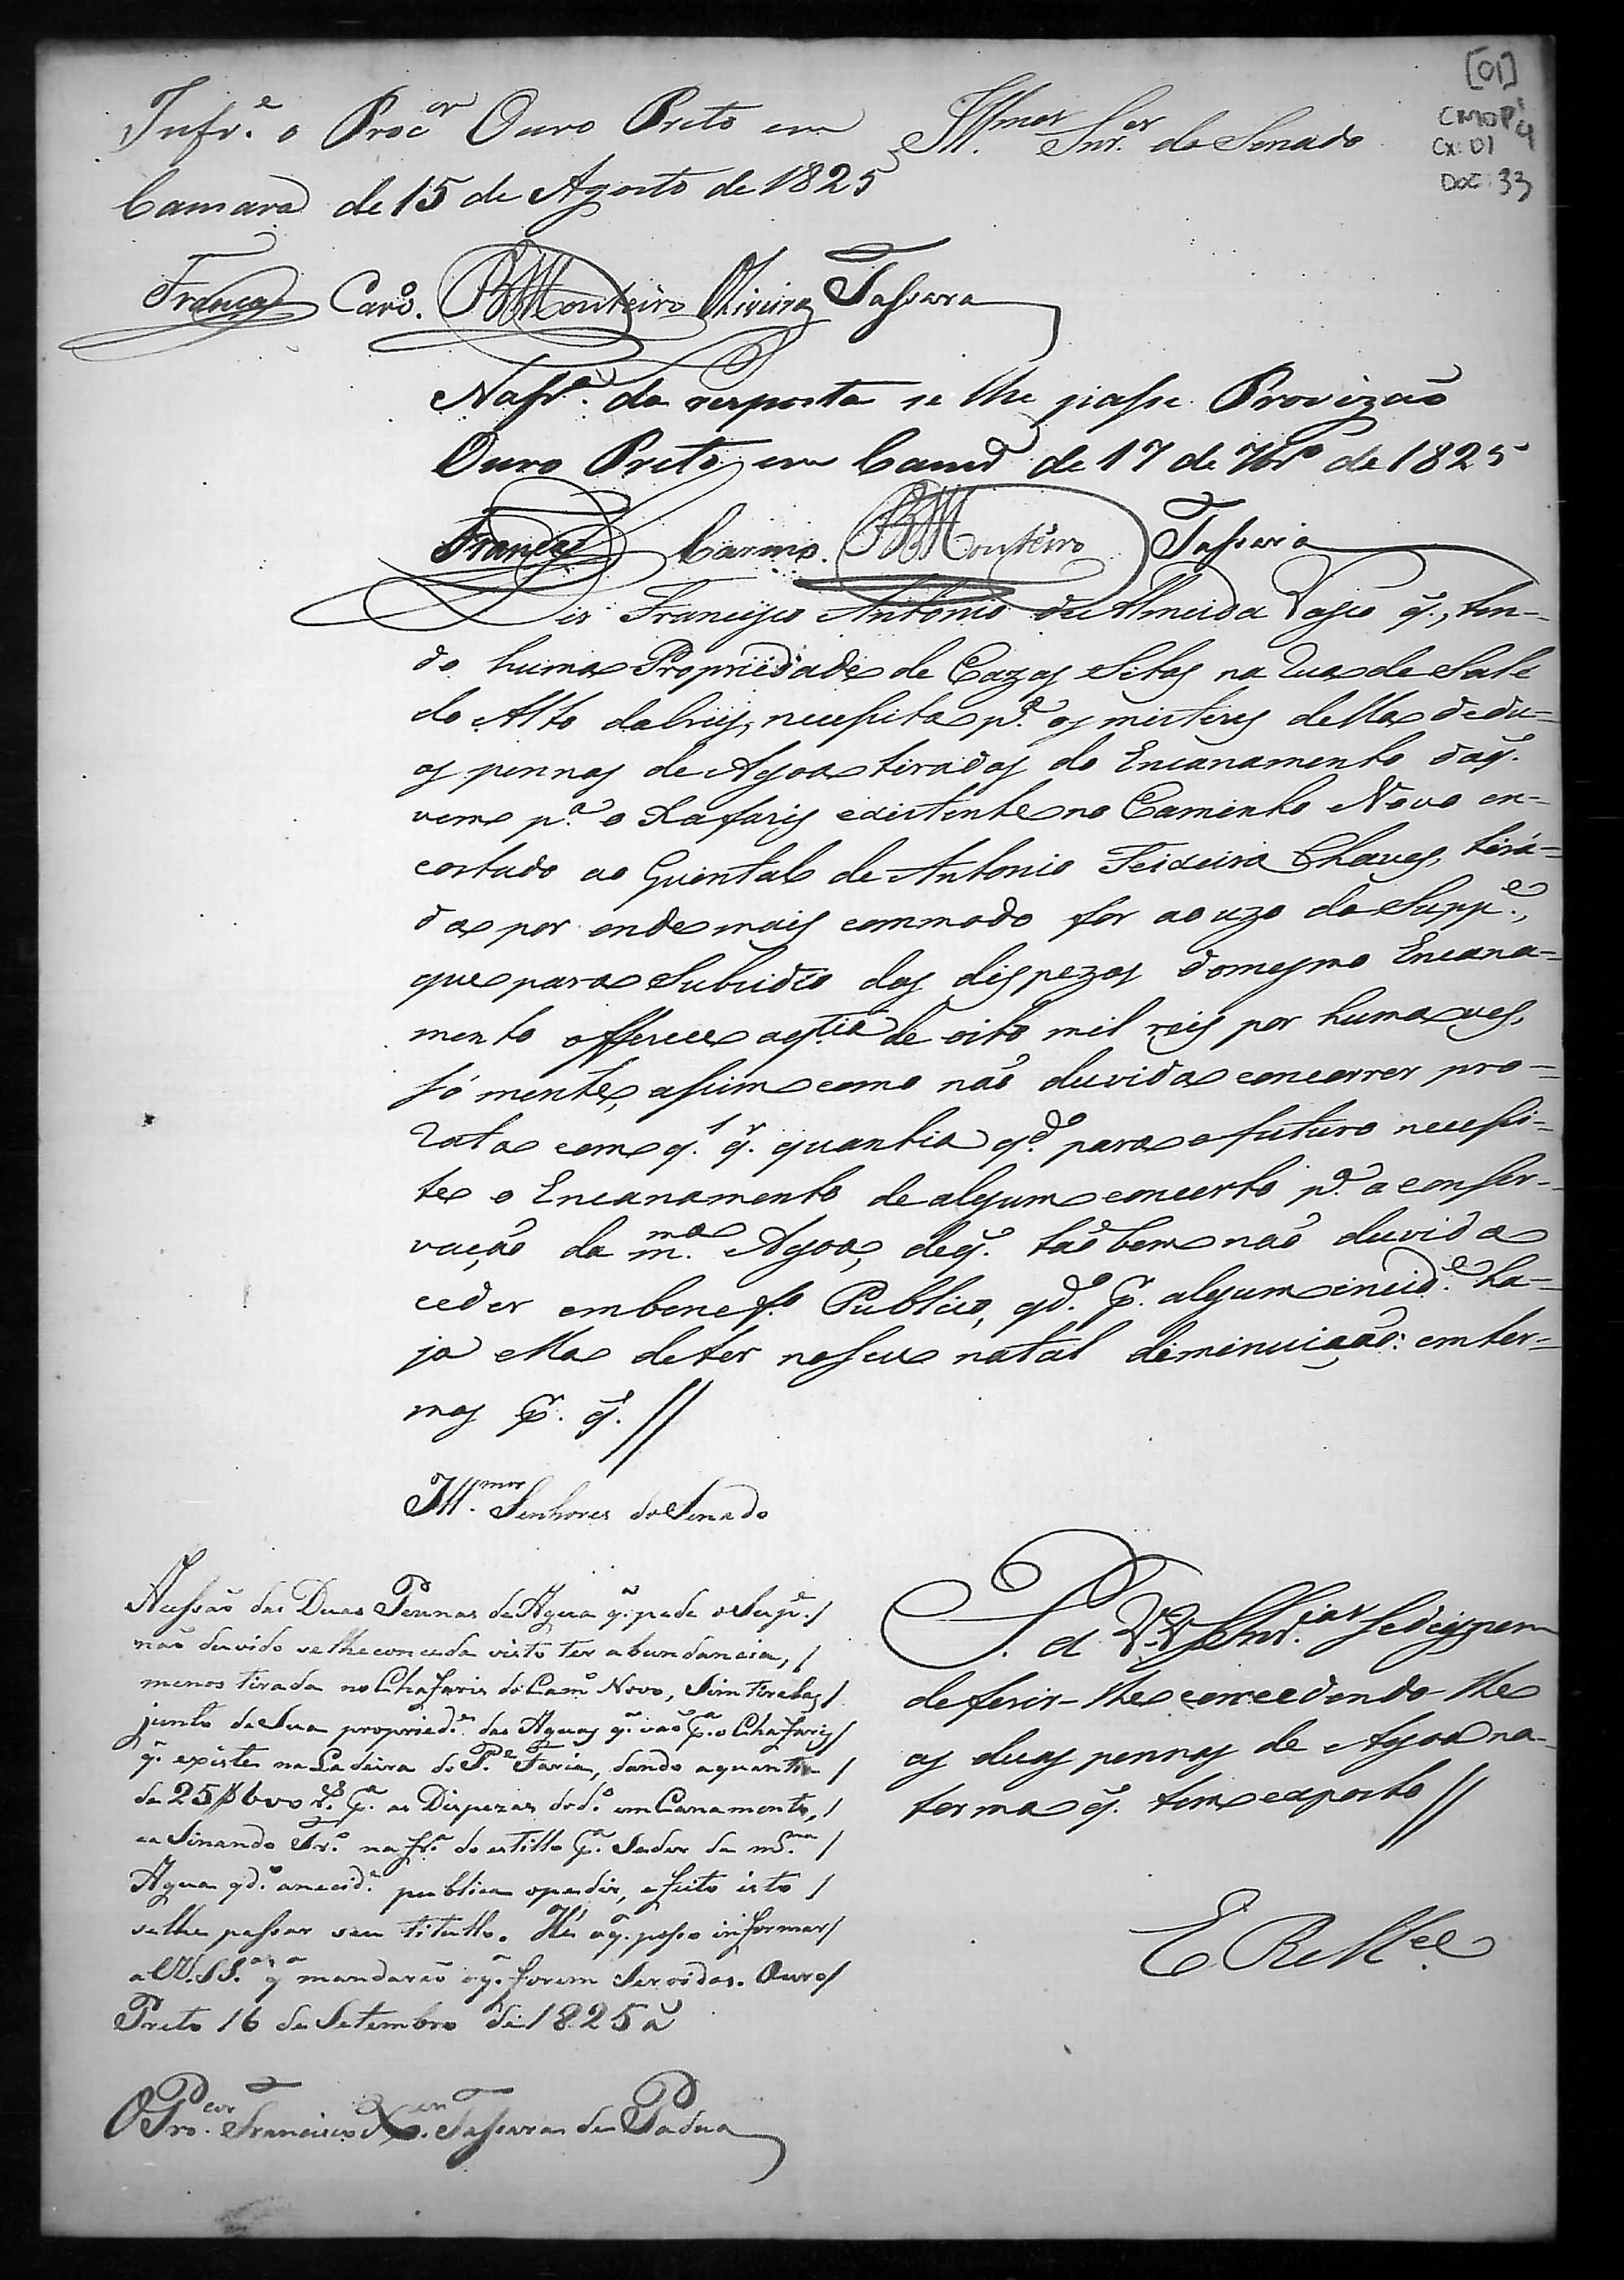 [01]
CMOP
Cx: 01 4
Doc: 33
Infr.e o Procor Ouro Preto em
Camara de 15 de Agosto de 1825
Illmos Snr.es do Senado
França Caro. Monteiro Oliveira Tassara
Na fr.a da resposta se lhe passe Provizaõ
Ouro Preto em Camr.a de 17 de 7br.o de 1825
França Carmo. Monteiro Tassara
Diz Francisco Antonio de Almeida Vasco q., ten-
do huma Propriedade de Cazas Sitas na Rua de
do Alto da Crus, necessita p.a os misteres della de du=
as pennas de Agoa tiradas do Encanamento da q.
vem p.a o Xafaris existente no Caminho Novo en=
costado ao Quintal de Antonio Teixeira Chaves, tirá=
da por onde mais commodo for ao uzo do Supp.e,
que para Subsidio das dispezas do mesmo Encana=
mento offerece a q.tia de oito mil reis por huma ves,
só mente, assim como naõ duvida concorrer pro=
rata com q.l q.r quantia q.do para o futuro necessi=
te o Encanamento de algum concerto p.a a conser-
vação da m.ma Agoa, de q. taõ bem naõ duvida
ceder em benef.o Publico, q.do p.r algum incid.e ha=
ja ella de ter no seu natal diminuiçaõ: em ter=
mos p.r q. //
Ill.mos Senhores do Senado
A cessaõ das Duas Pennas de Agua q. pede o Sup.e /
naõ duvido se lhe conceda visto ter abundancia, /
menos tirada no Chafaris do Cam.o Novo, Sim tirelas /
junto de Sua propried.e das Aguas q. vaõ p.a o Chafaris /
q. existe na Ladeira do P.e Faria, dando a quantia /
de 25$600 r.s p.a as Dispezas do d.o em Canamento, /
a Sinando Tr.o na fr.a do estillo p.a Seder da m.ma /
Agua q.do a necid.e publica o pedir, e feito isto /
se lhe passar seu titullo. Hé o q. posso informar /
a VV.SS.as q. mandaraõ o q. forem Servidos. Ouro /
Preto 16 de Setembro de 1825 a
O Procor Francisco X.er Tassara de Padua
P. a VV. Snr.ias se dignem
deferir-lhe concedendo-lhe
as duas pennas de Agoa na
forma q. tem exposto //
E R Mce